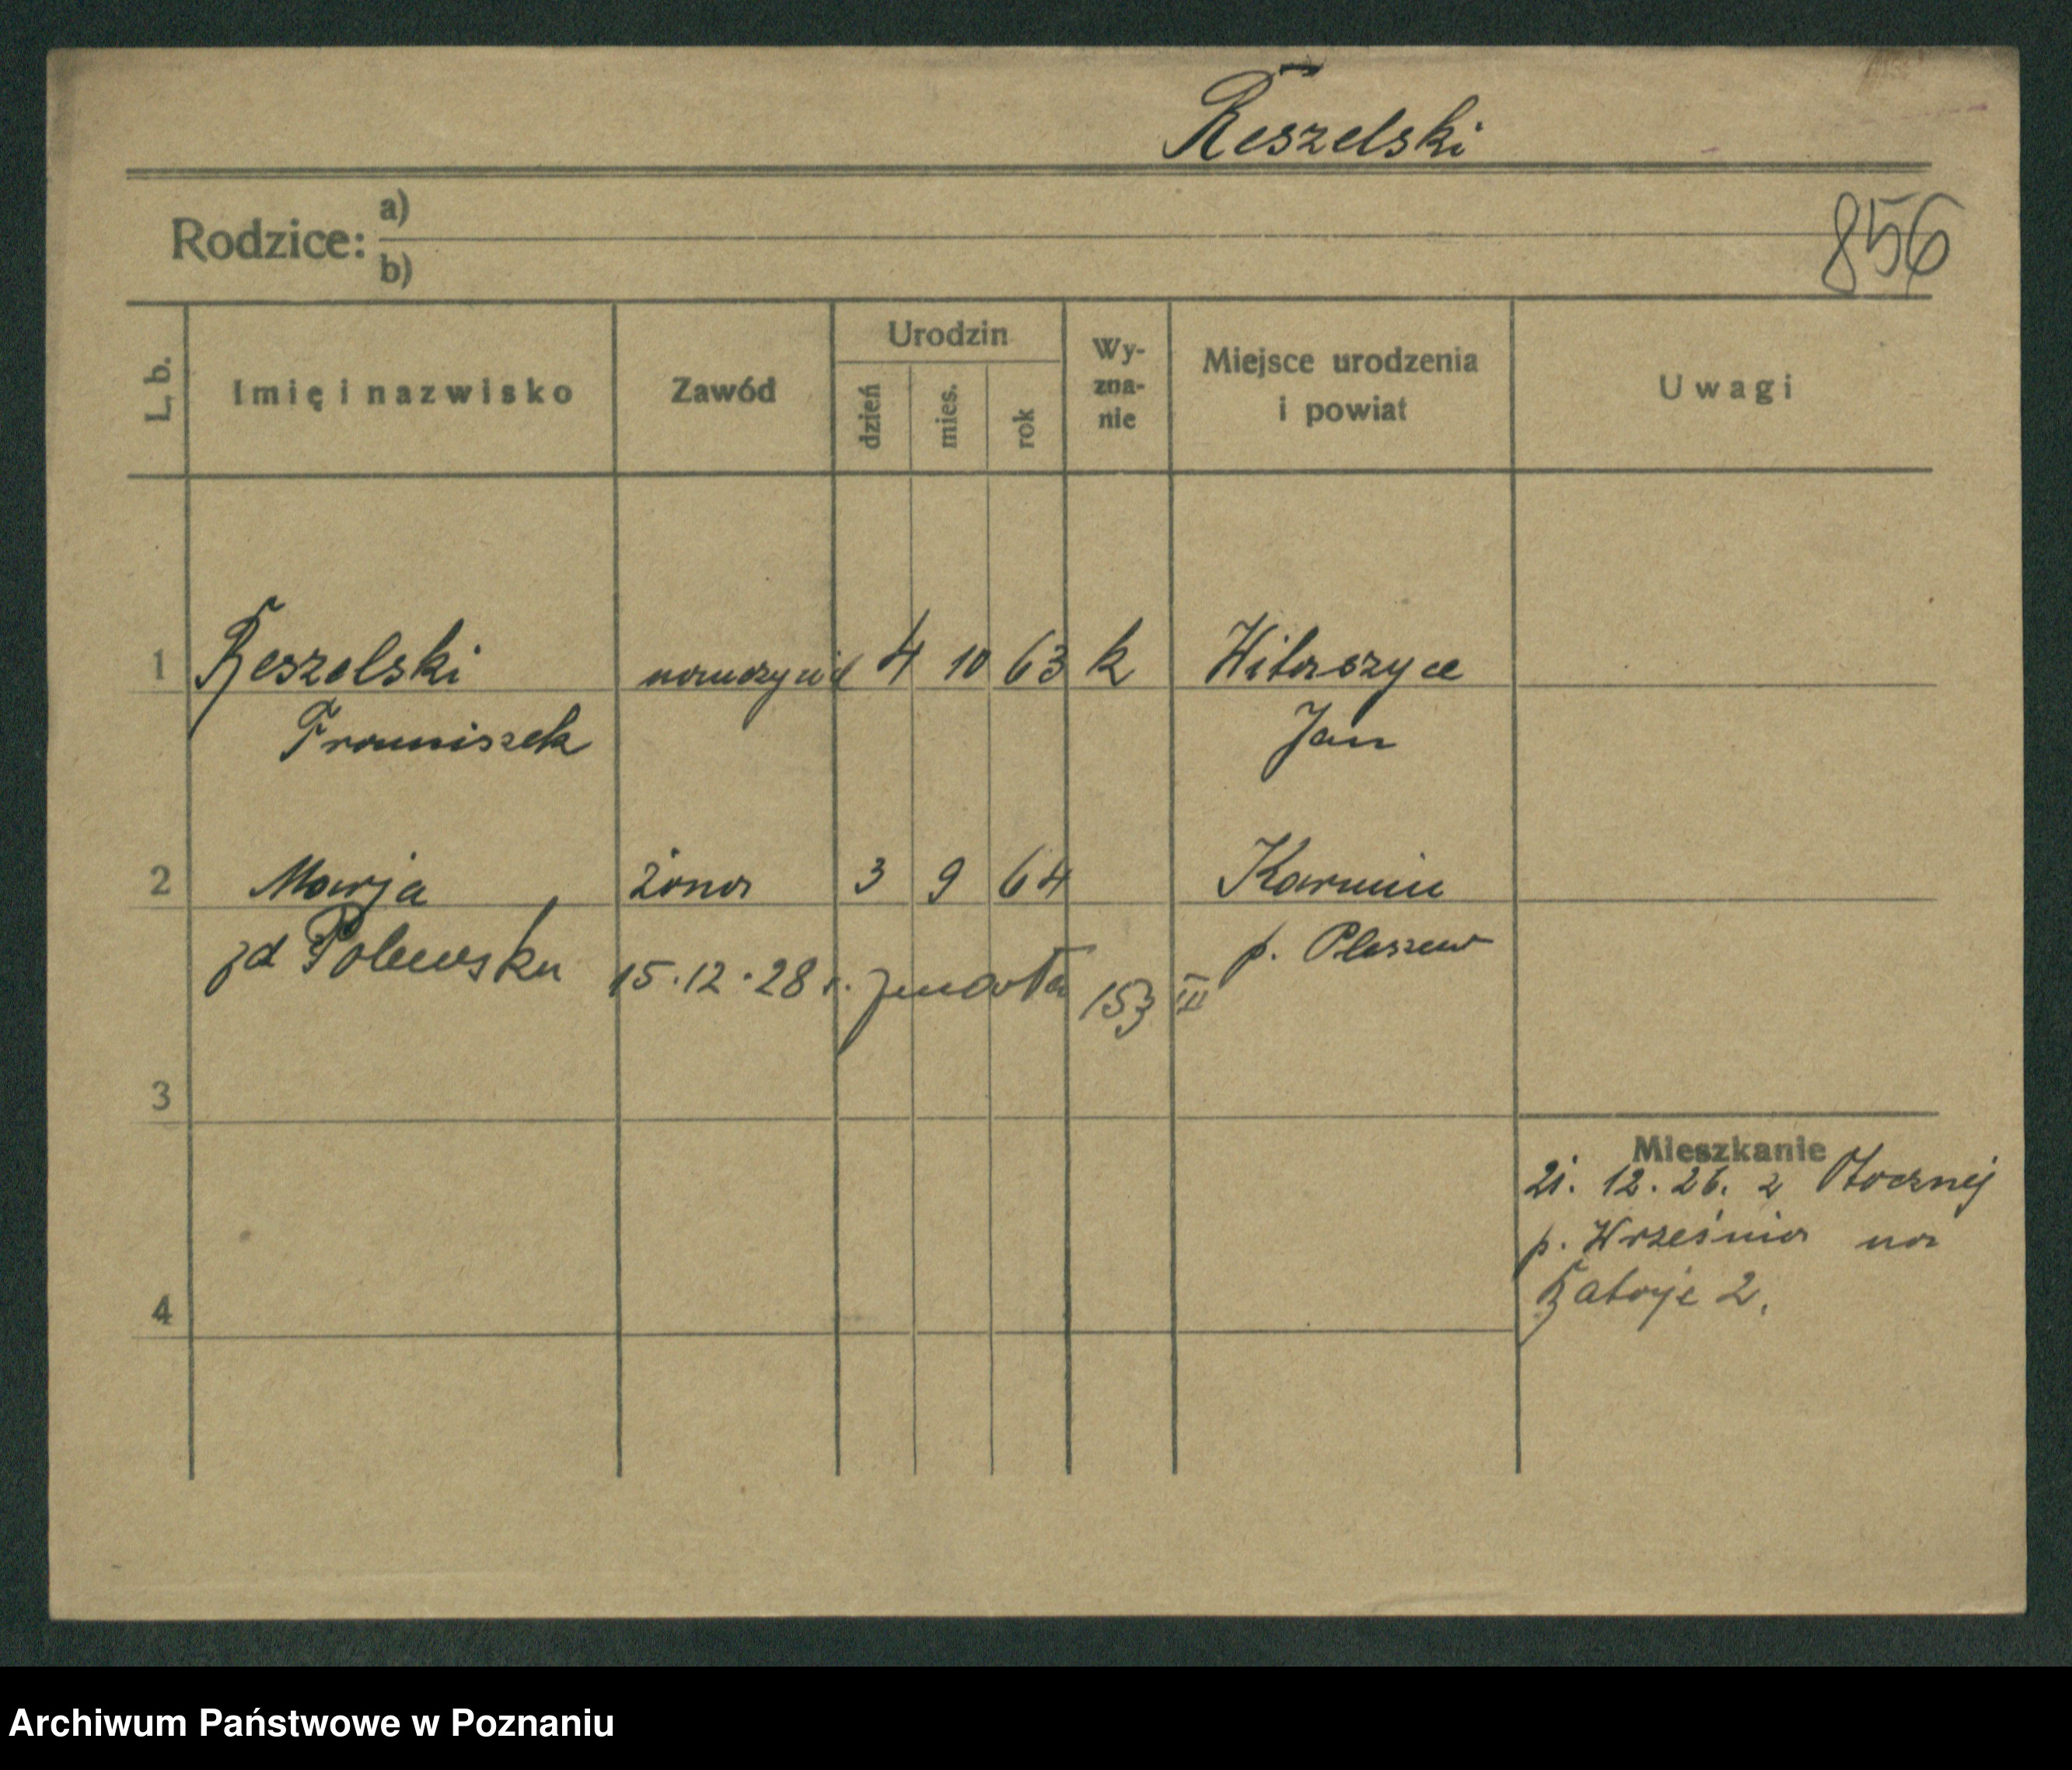 Reszelski
Rodzice: a)
b)
856
L. b. Imię i nazwisko Zawód Urodzin dzień mies. rok Wy-zna-nie Miejsce urodzenia i powiat Uwagi
1 Reszelski nauczyciel 4 10 63 k Witaszyce
Franciszek Jan
2 Marja żona 3 9 64 Karmin
zd p. Pleszew
15.12.28 r. zmarła 153 III
3
Mieszkanie
21. 12. 26. z Otocznej
p. Września na
2.
4
Archiwum Państwowe w Poznaniu